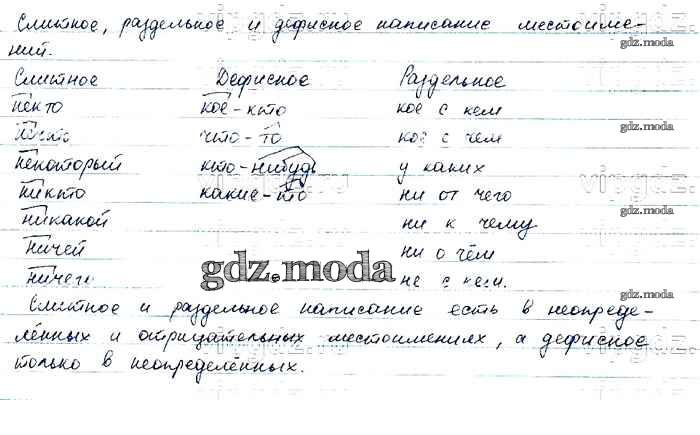 Слитное, раздельное и дефисное написание местоиме-
ний.
Слитное Дефисное Раздельное
некто кое-кто кое с кем
что-то кое с чем
некоторый кто-нибудь у каких
никто какие-то ни от чего
никакой ни к чему
ничей ни о чём
ничего не с кем.
Слитное и раздельное написание есть в неопреде-
лённых и отрицательных местоимениях, а дефисное
только в неопределённых.
gdz.moda
gdz.moda
gdz.moda
gdz.moda
gdz.moda
gdz.moda
gdz.moda